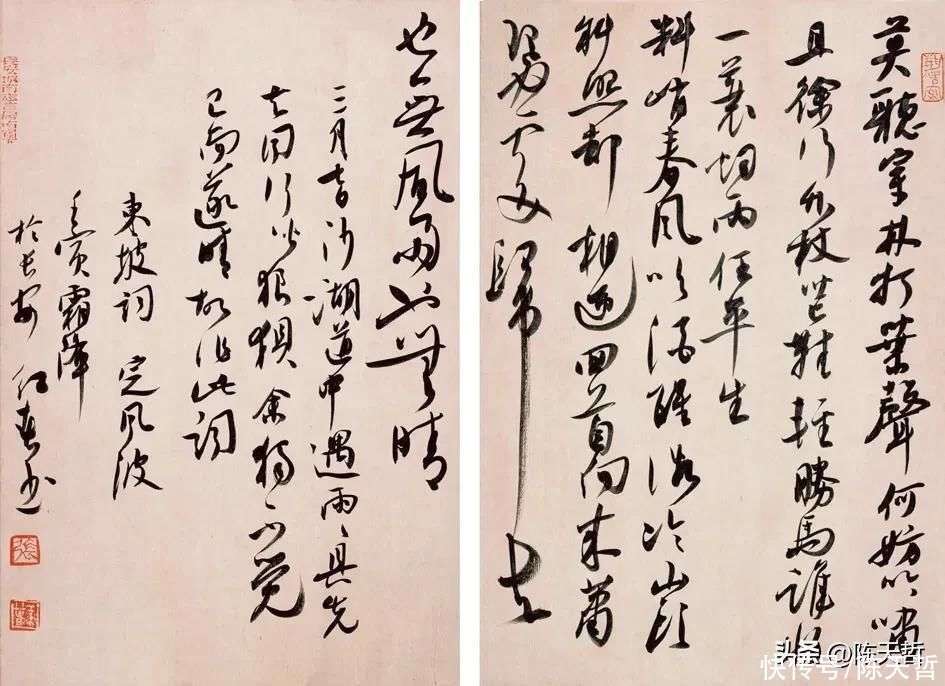 莫聽穿林打葉聲何妨吟嘯
且徐行竹杖芒鞋輕勝馬誰怕
一蓑烟雨任平生
料峭春風吹酒醒微冷山頭
斜照却相迎回首向来蕭
瑟處歸去
也無風雨也無晴
三月七日沙湖道中遇雨〻具先
去同行皆狼狽余獨不覺
已而遂晴故作此詞
東坡詞 定風波
壬寅霜降
於長安 红春书
張
头条 @陈天哲
快传号/陈天哲